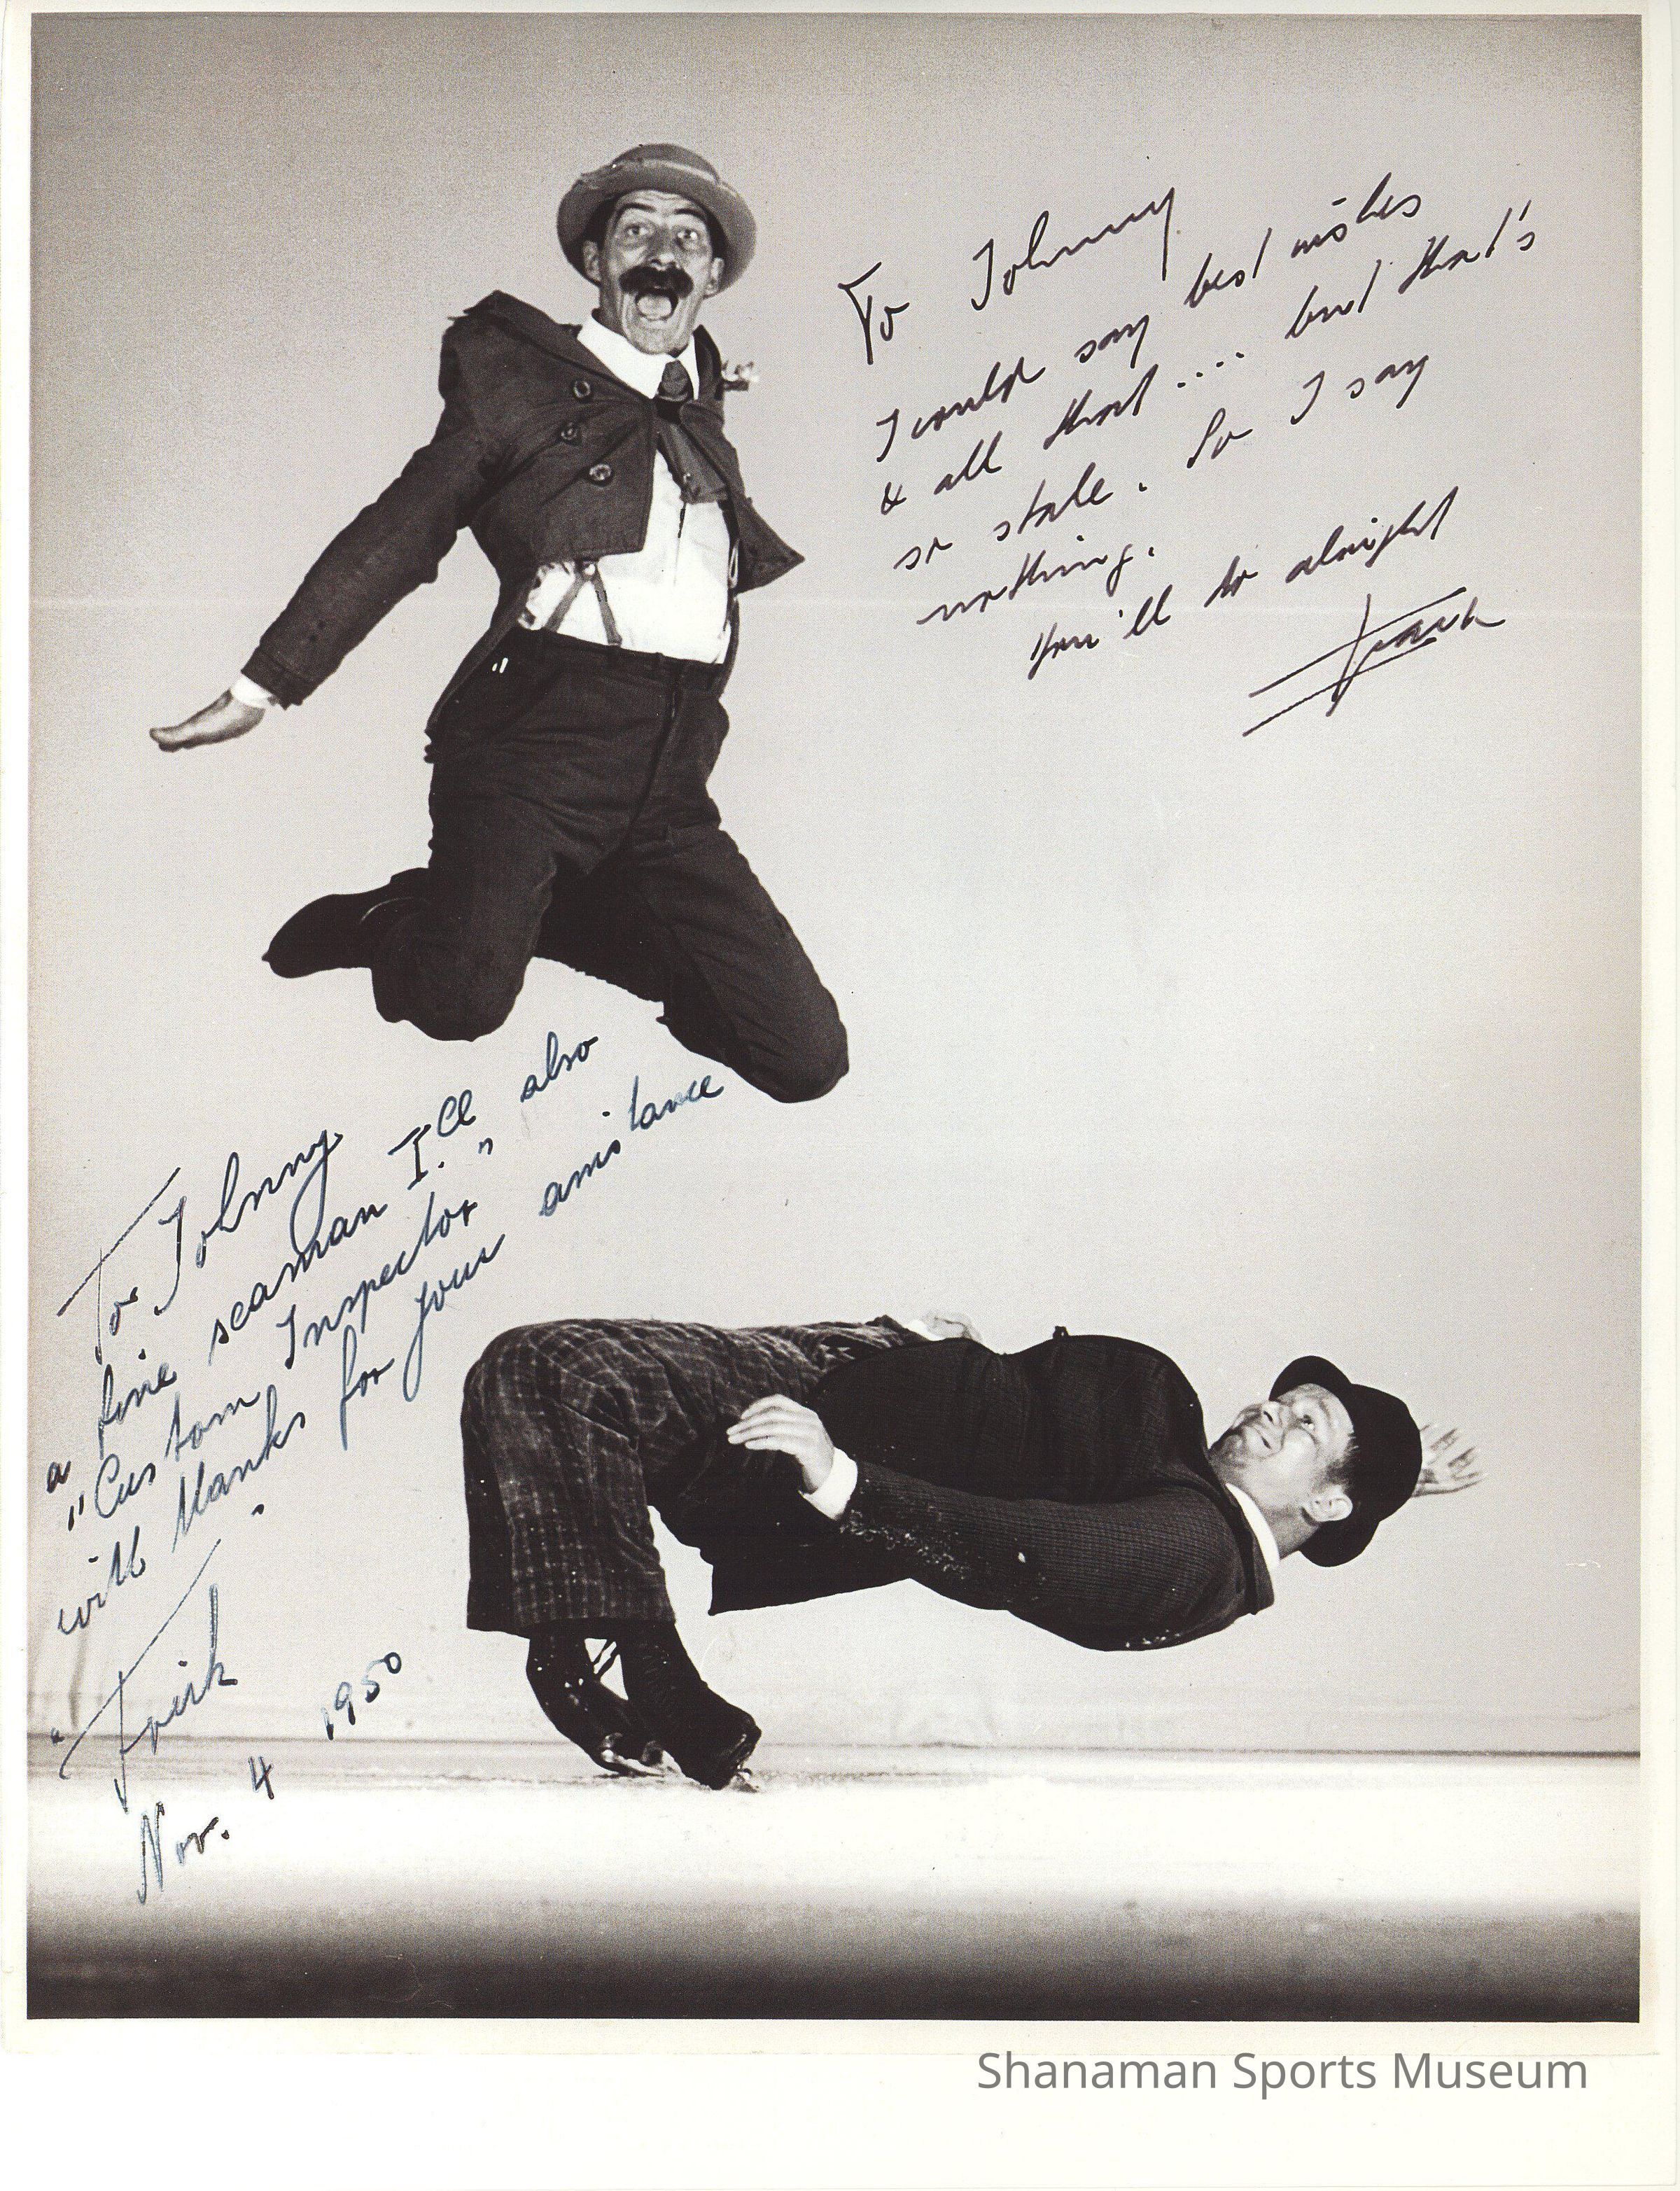 To Johnny
I could say best wishes
& all that .... but that's
so stale. So I say
nothing.
You'll do alright
Frack
To Johnny
a fine seaman I. cl also
"Custom Inspector"
with thanks for your assistance
"Frick"
Nov. 4 1950
Shanaman Sports Museum